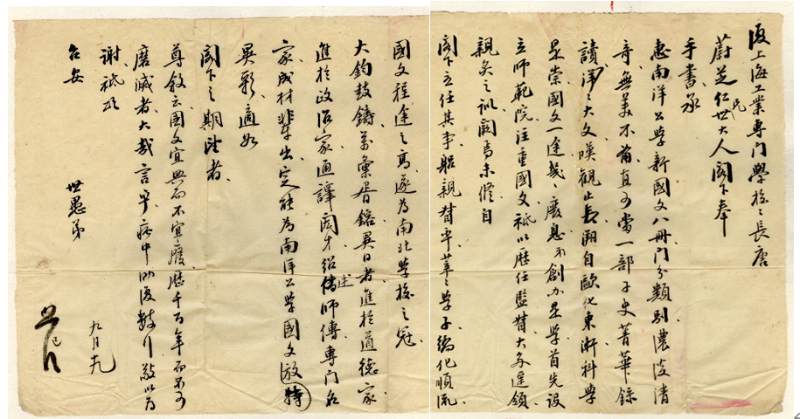 復上海工業專門學校校長唐
蔚芝仁世大人閣下奉
手書承
惠南洋公學新國文八冊門分類別濃淡清
奇無美不備直可當一部子史菁華錄
讀洋洋大文嘆觀止矣溯自歐化東漸科學
是崇國文一途幾幾廢息弟創辦是學首先設
立師範院注重國文祗以歷任監督大多遙領
親炙之訓闕焉未修自
閣下主任其事躬親督率莘莘學子鎔化順流
國文程途之高遂為南北學校之冠
大鈞鼓鑄萬彙胥鎔異日者進於道德家
進於政治家通譯閎才紹述師傅專門名
家成材輩出定能為南洋公學國文放特
異彩適如
閣下之期望者
尊敘云國文宜興而不宜廢歷千百年而不可
磨滅者大哉言乎病中泐復敬以為
謝祗頌
台安
世愚弟
九月